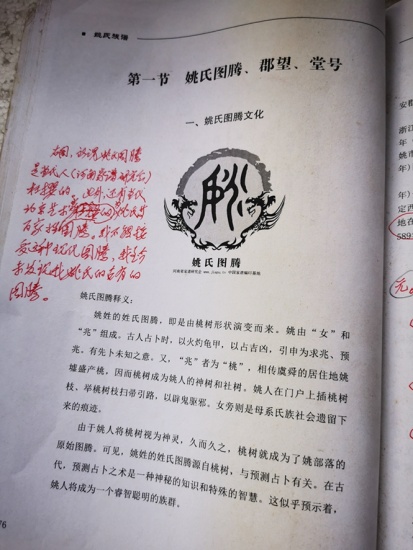 姚氏族谱
第一节 姚氏图腾、郡望、堂号
一、姚氏图腾文化
右图,所谓姚氏图腾
是当代人(河南
杜撰的。此外,还有当代
的
百家姓图腾,我不能接
受这种现代图腾,
图腾。
姚氏图腾
姚氏图腾释义:
姚姓的姓氏图腾,即是由桃树形状演变而来。姚由“女”和
“兆”组成。古人占卜时,以火灼龟甲,以占吉凶,引申为求兆、预
兆。有先卜未知之意。又,“兆”者为“桃”,相传虞舜的居住地姚
墟盛产桃,因而桃树成为姚人的神树和社树。姚人在门户上插桃树
枝、举桃树枝扫帚引路,以辟鬼驱邪。女旁则是母系氏族社会遗留下
来的痕迹。
由于姚人将桃树视为神灵,久而久之,桃树就成为了姚部落的
原始图腾。可见,姚姓的姓氏图腾源自桃树,与预测占卜有关。在古
代,预测占卜之术是一种神秘的知识和特殊的智慧。这似乎预示着,
姚人将成为一个睿智聪明的族群。
76
安
浙江
年
姚市
年)
年)
定西
地在
589